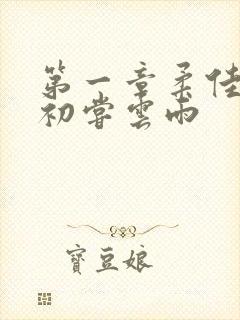 第一章柔佳
初嘗雲雨
寶豆娘